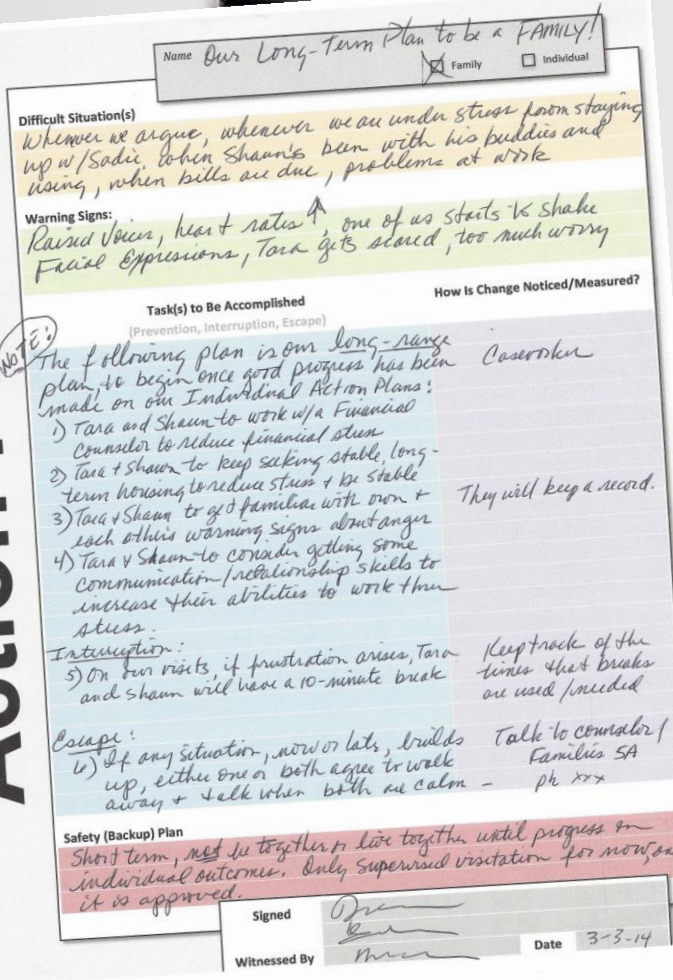 Name Our Long-Term Plan to be a FAMILY!
Family Individual
Difficult Situation(s)
Whenever we argue, whenever we are under stress from staying
up w/Sadie, when Shaun's been with his buddies and
using, when bills are due, problems at work
Warning Signs:
Raised Voices, heart rates ↑, one of us starts to shake
Facial Expressions, Tara gets scared, too much worry
Task(s) to Be Accomplished
(Prevention, Interruption, Escape)
How Is Change Noticed/Measured?
NOTE:
The following plan is our long-range
plan, to begin once good progress has been
made on our Individual Action Plans:
Caseworker
1) Tara and Shaun to work w/a Financial
Counselor to reduce financial stress
2) Tara + Shawn to keep seeking stable, long-
term housing to reduce stress + be stable
3) Tara + Shaun to get familiar with own +
each others warning signs about anger
They will keep a record.
4) Tara + Shaun to consider getting some
communication/relationship skills to
increase their abilities to work thru
stress.
Interruption:
5) On our visits, if frustration arises, Tara
and Shaun will have a 10-minute break
Keep track of the
times that breaks
are used/needed
Escape:
6) If any situation, now or late, builds
up, either one or both agree to walk
away + talk when both are calm –
Talk to counselor/
Families SA
ph xxx
Safety (Backup) Plan
Short term, not be together or live together until progress on
individual outcomes. Only supervised visitation for now, as
it is approved.
Signed
Witnessed By
Date 3-3-14